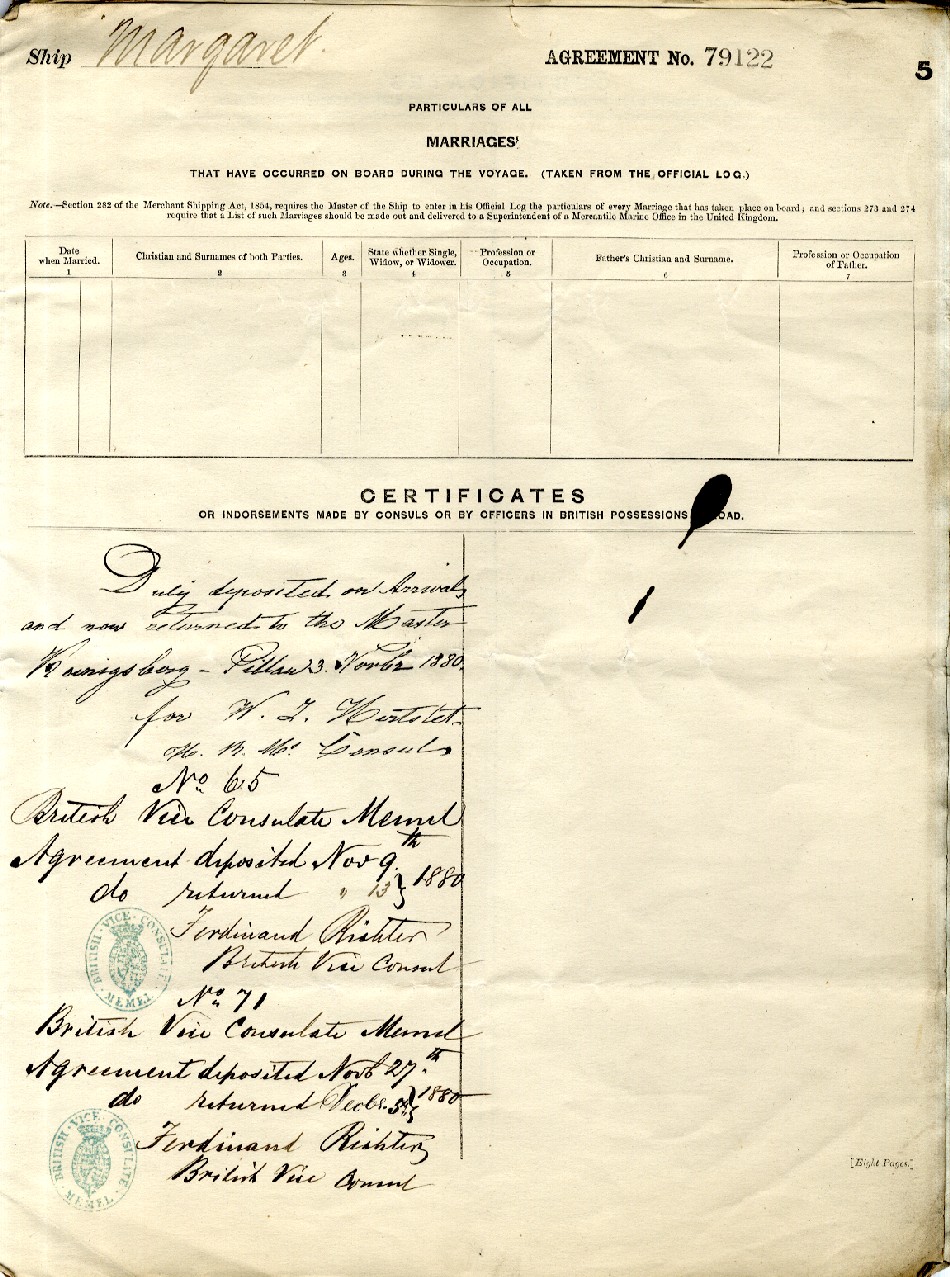 Ship Margaret.
AGREEMENT No. 79122
5
PARTICULARS OF ALL
MARRIAGES
THAT HAVE OCCURRED ON BOARD DURING THE VOYAGE. (TAKEN FROM THE OFFICIAL LOG.)
Note.—Section 282 of the Merchant Shipping Act, 1854, requires the Master of the Ship to enter in his Official Log the particulars of every Marriage that has taken place on board; and sections 273 and 274
require that a List of such Marriages should be made out and delivered to a Superintendent of a Mercantile Marine Office in the United Kingdom.
Date when Married. 1
Christian and Surnames of both Parties. 2
Ages. 3
State whether Single, Widow, or Widower. 4
Profession or Occupation. 5
Father's Christian and Surname. 6
Profession or Occupation of Father. 7
CERTIFICATES
OR INDORSEMENTS MADE BY CONSULS OR BY OFFICERS IN BRITISH POSSESSIONS OAD.
Duly deposited on Arrival
and now returned to the Master
Koenigsberg - Pillau 3. Novbr 1880.
for W. J. Hertslet
H. B. M's Consul
No. 65
British Vice Consulate Memel
Agreement deposited Nov 9th
do returned " 13 } 1880
Ferdinand Richter
British Vice Consul
BRITISH VICE-CONSULATE MEMEL
No. 71
British Vice Consulate Memel
Agreement deposited Novb 27th
do returned Decbr 5th } 1880
Ferdinand Richter
British Vice Consul
BRITISH VICE-CONSULATE MEMEL
[Eight Pages.]